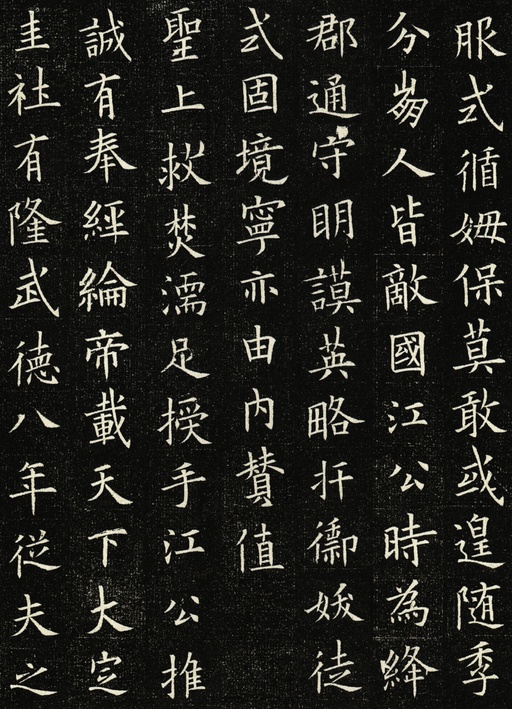 服式循姆保莫敢或遑随季
分崩人皆敵國江公時為絳
郡通守明謨英略扞御娥徒
式固境寧亦由内賛值
聖上救焚濡足授手江公推
誠有奉經綸帝載天下大定
圭社有隆武德八年従夫之